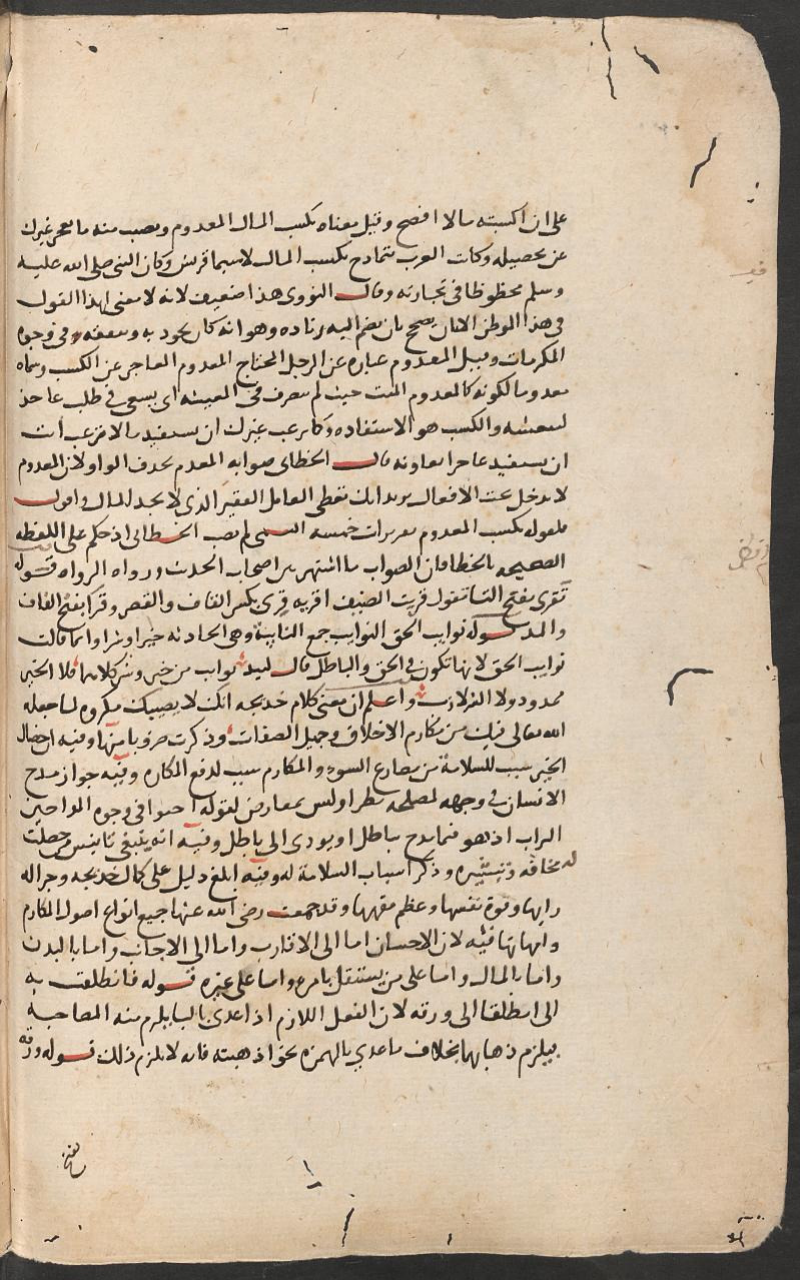 على ان اكسبته مالا افصح وقيل معناه تكسب المال المعدوم وتصيب منه ما يعجز غيرك
عن تحصيله وكانت العرب تتمادح بكسب المال لاسيما قريش وكان النبي صلى الله عليه
وسلم محظوظا في تجارته وقال النووي هذا ضعيف لانه لا معنى لهذا القول
في هذا الموطن الا ان يصح بان يضم اليه زياده وهو انه كان يجود به وينفقه في وجوه
المكرمات وقيل المعدوم عباره عن الرجل المحتاج المعدوم العاجز عن الكسب وسماه
معدوما لكونه كالمعدوم الميت حيث لم يتصرف في المعيشه اى يسعى في طلب عاجز
لتعيشه والكسب هو الاستفاده وكما يرغب غيرك ان يستفيد مالا ترغب انت
ان تستفيد عاجزا تعاونه قال الخطابي صوابه المعدم بحذف الواو لان المعدوم
لا يدخل تحت الافعال يريد انك تعطي العايل الفقير الذي لا يجد المال واقول
فلقوله تكسب المعدوم تقريرات خمسه التيمي لم يصب الخطابي اذ حكم على اللفظه
الصحيحه بالخطا فان الصواب ما اشتهر بين اصحاب الحديث ورواه الرواه قوله
تقرى بفتح التا تقول قريت الضيف اقريه قرى بكسر القاف والقصر وقرا بفتح القاف
والمد قوله نوايب الحق النوايب جمع النايبة وهي الحادثه خيرا وشرا وانما قالت
نوايب الحق لانها تكون في الحق والباطل قال لبيد نوايب من خير وشر كلاهما فلا الخير
ممدود ولا الشر لازب واعلم ان معنى كلام خديجه انك لا يصيبك مكروه لما جعله
الله تعالى فيك من مكارم الاخلاق وجميل الصفات وذكرت ضروبا منها وفيه ان خصال
الخير سبب للسلامة من مصارع السوء والمكارم سبب لدفع المكاره وفيه جواز مدح
الانسان في وجهه لمصلحه تطرا وليس بمعارض لقوله احثوا في وجوه المداحين
التراب اذ هو فيما يمدح بباطل او يودى الى باطل وفيه انه ينبغي تانيس من حصلت
له مخافه وتبشيره وذكر اسباب السلامة له وفيه ابلغ دليل على كمال خديجه وجزاله
رايها وقوة نفسها وعظم فقهها وقد جمعت رضى الله عنها جميع انواع اصول المكارم
وامهاتها فيه لان الاحسان اما الى الاقارب واما الى الاجانب واما بالبدن
واما بالمال واما على من يستقل بامره واما على غيره قوله فانطلقت به
الى انطلقا الى ورقه لان الفعل اللازم اذا عدى بالبا يلزم منه المصاحبة
فيلزم ذهابهما بخلاف ما عدي بالهمزه نحو اذهبته فانه لا يلزم ذلك قوله ورقه
بفتح